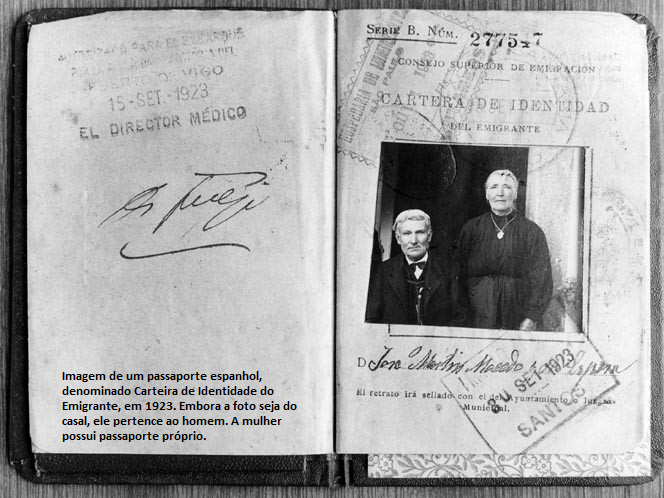 AUTORIZADO PARA EL EMBARQUE
DEL
VIGO
15-SET.1923
EL DIRECTOR MÉDICO
Imagem de um passaporte espanhol,
denominado Carteira de Identidade do
Emigrante, em 1923. Embora a foto seja do
casal, ele pertence ao homem. A mulher
possui passaporte próprio.
SERIE B. NÚM. 277547
CONSEJO SUPERIOR DE EMIGRACIÓN
CARTERA DE IDENTIDAD
DEL EMIGRANTE
D José Martin
SET 1923
El retrato irá sellado con el del Ayuntamiento o Juzgado
Municipal.
SANTOS